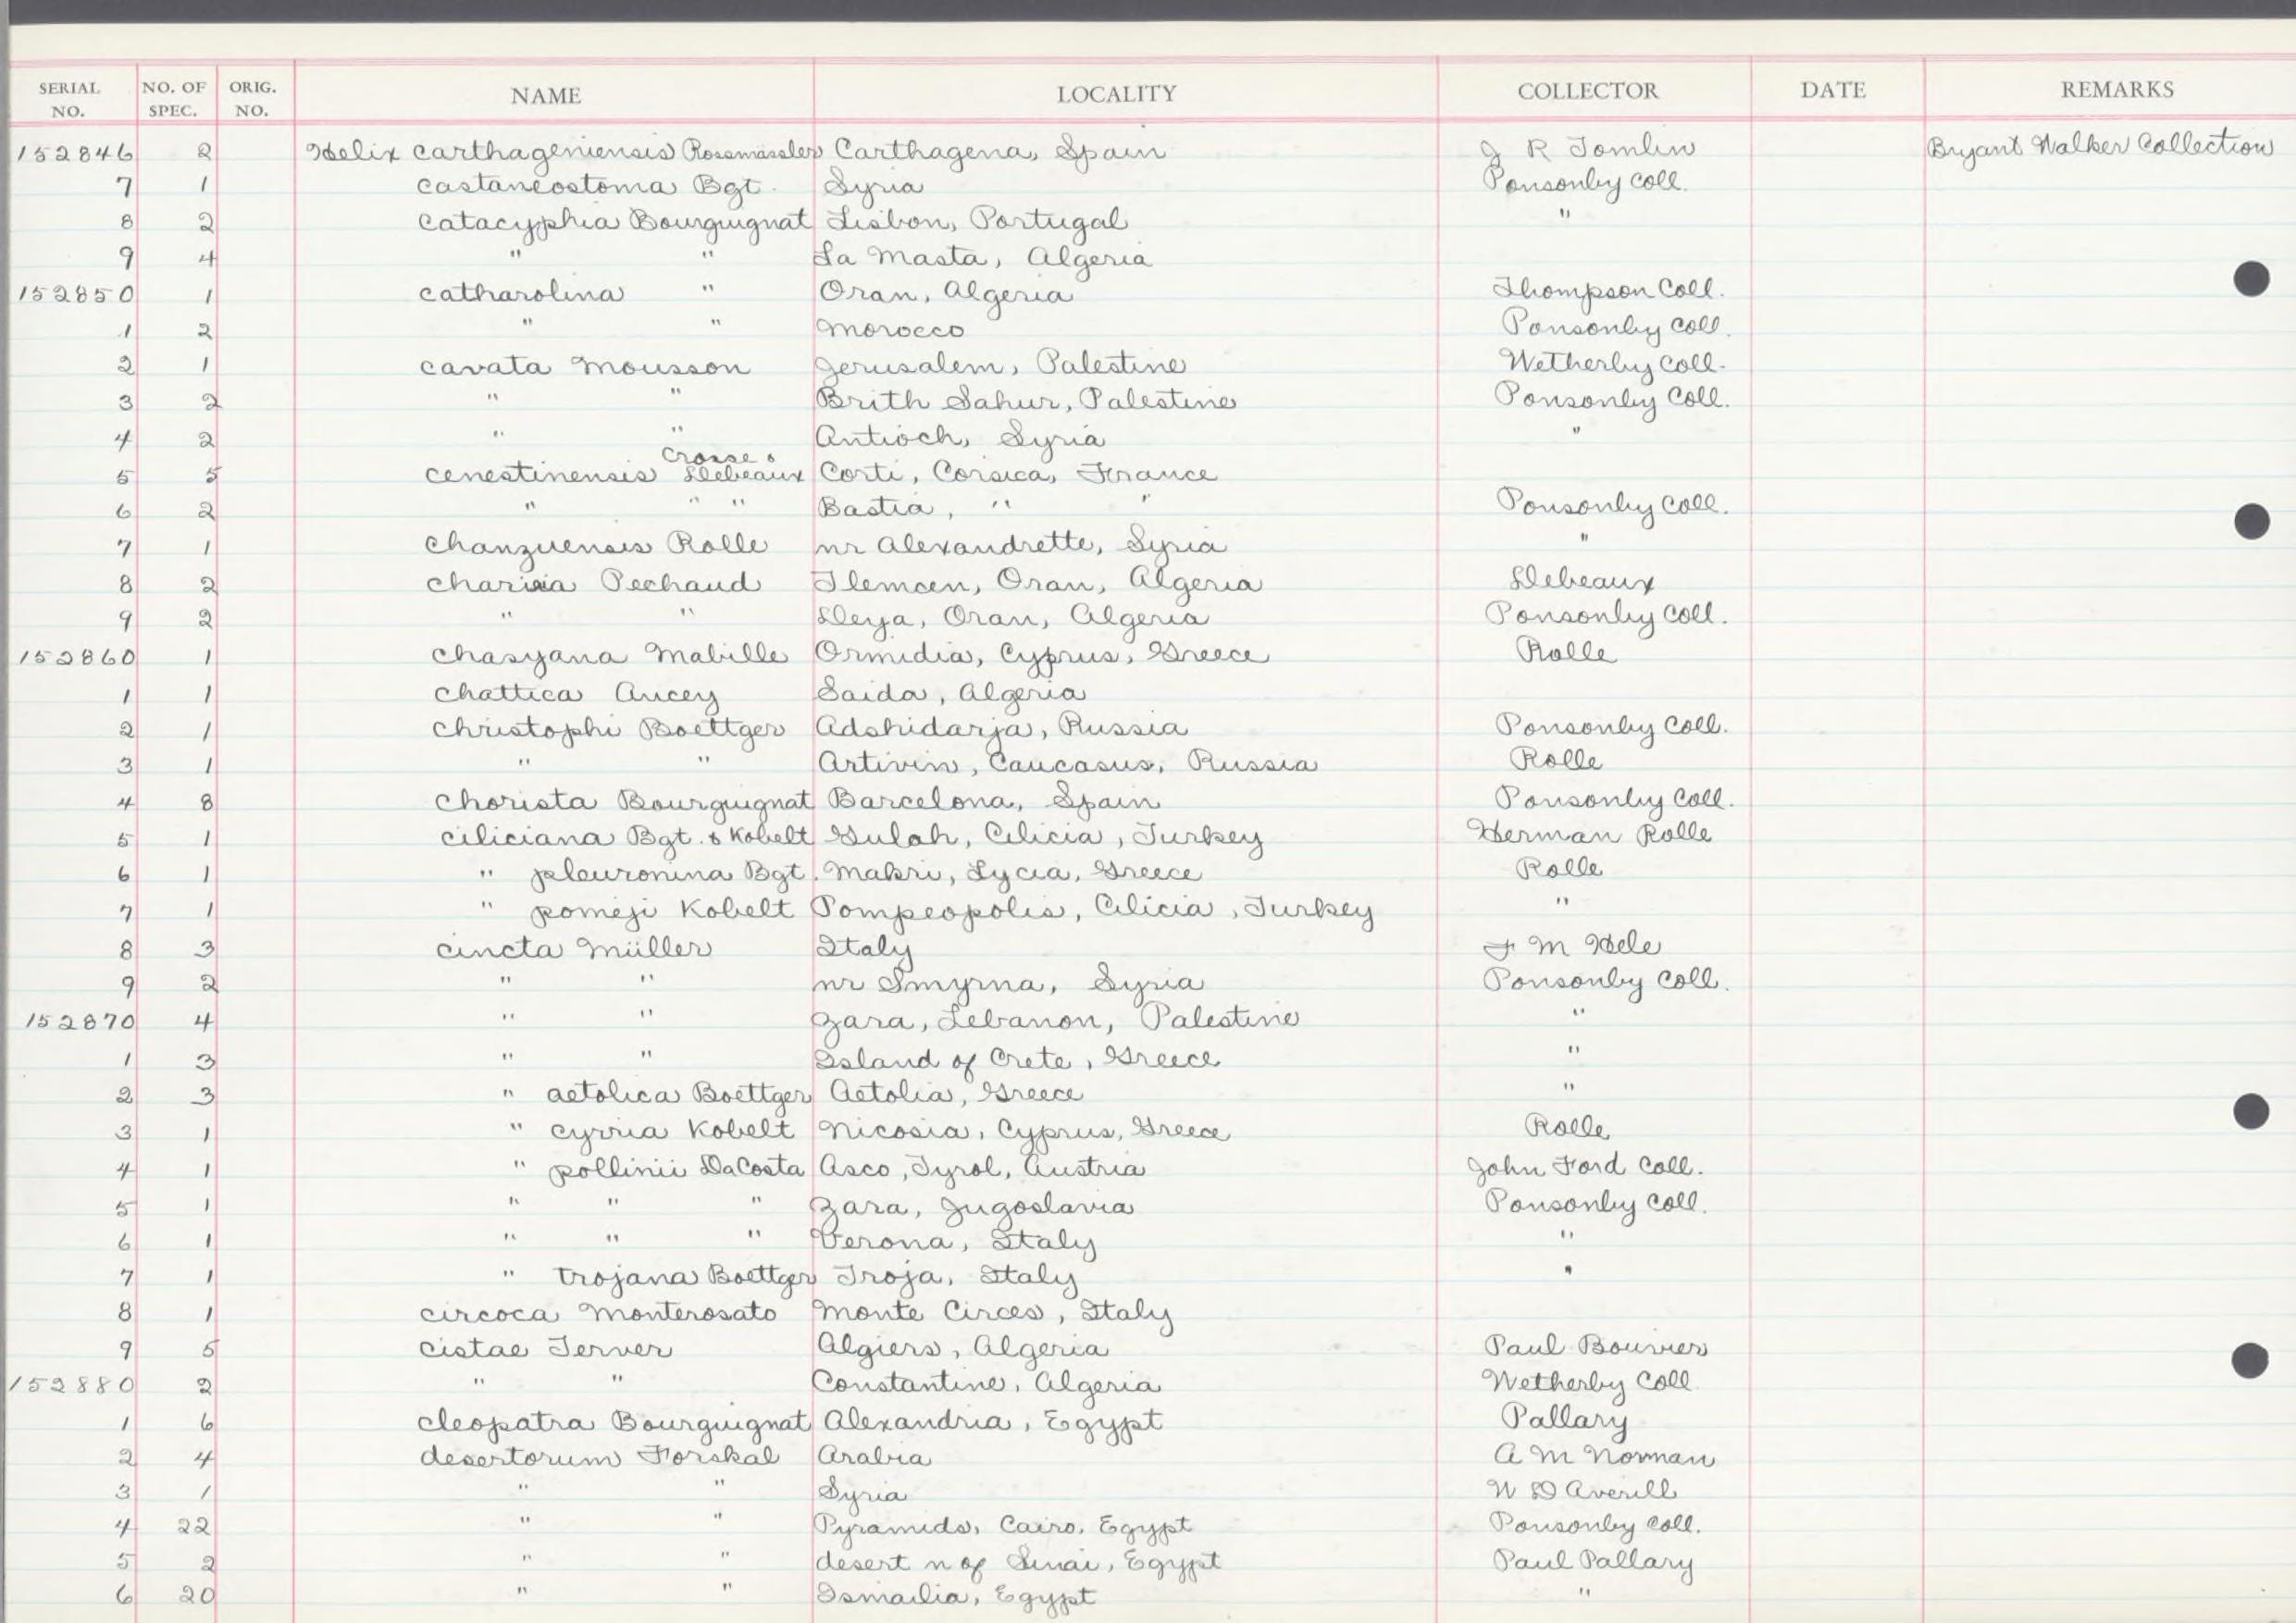 SERIAL NO. NO. OF SPEC. ORIG. NO. NAME LOCALITY COLLECTOR DATE REMARKS
152846 2 Helix carthageniensis Rossmassler Carthagena, Spain J R Tomlin Bryant Walker Collection
7 1 castaneostoma Bgt. Syria Ponsonby Coll.
8 2 catacyphia Bourguignat Lisbon, Portugal "
9 4 " " La Masta, Algeria
152850 1 catharolina " Oran, Algeria Thompson Coll.
1 2 " " Morocco Ponsonby Coll.
2 1 cavata Mousson Jerusalem, Palestine Wetherby Coll.
3 2 " " Brith Sahur, Palestine Ponsonby Coll.
4 2 " " Antioch, Syria "
5 5 cenestinensis Crosse & Debeaux Corti, Corsica, France
6 2 " " " Bastia, " " Ponsonby Coll.
7 1 chanzuensis Rolle nr Alexandrette, Syria "
8 2 Pechaud Tlemcen, Oran, Algeria Debeaux
9 2 " " Deya, Oran, Algeria Ponsonby Coll.
152860 1 chasyana Mabille Ormidia, Cyprus, Greece Rolle
1 1 chattica Ancey Saida, Algeria
2 1 christophi Boettger Adshidarja, Russia Ponsonby Coll.
3 1 " " Artivin, Caucasus, Russia Rolle
4 8 chorista Bourguignat Barcelona, Spain Ponsonby Coll.
5 1 ciliciana Bgt. & Kobelt Gulah, Cilicia, Turkey Herman Rolle
6 1 " pleuronina Bgt. Makri, Lycia, Greece Rolle
7 1 " pomeji Kobelt Pompeopolis, Cilicia, Turkey "
8 3 cincta Müller Italy F M Hele
9 2 " " nr Smyrna, Syria Ponsonby Coll.
152870 4 " " Zara, Lebanon, Palestine "
1 3 " " Island of Crete, Greece "
2 3 " aetolica Boettger Aetolia, Greece "
3 1 " cyrria Kobelt Nicosia, Cyprus, Greece Rolle
4 1 " pollinii DaCosta Asco, Tyrol, Austria John Ford Coll.
5 1 " " " Zara, Jugoslavia Ponsonby Coll.
6 1 " " " Verona, Italy "
7 1 " trojana Boettger Troja, Italy "
8 1 circoca Monterosato Monte Circes, Italy
9 5 cistae Terver Algiers, Algeria Paul Bouvier
152880 2 " " Constantine, Algeria Wetherby Coll
1 6 cleopatra Bourguignat Alexandria, Egypt Pallary
2 4 desertorum Forskal Arabia A M Norman
3 1 " " Syria W D Averill
4 22 " " Pyramids, Cairo, Egypt Ponsonby Coll.
5 2 " " desert n of Sinai, Egypt Paul Pallary
6 20 " " Ismailia, Egypt "